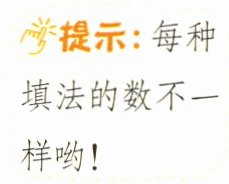 提示：每种
填法的数不一
样哟！